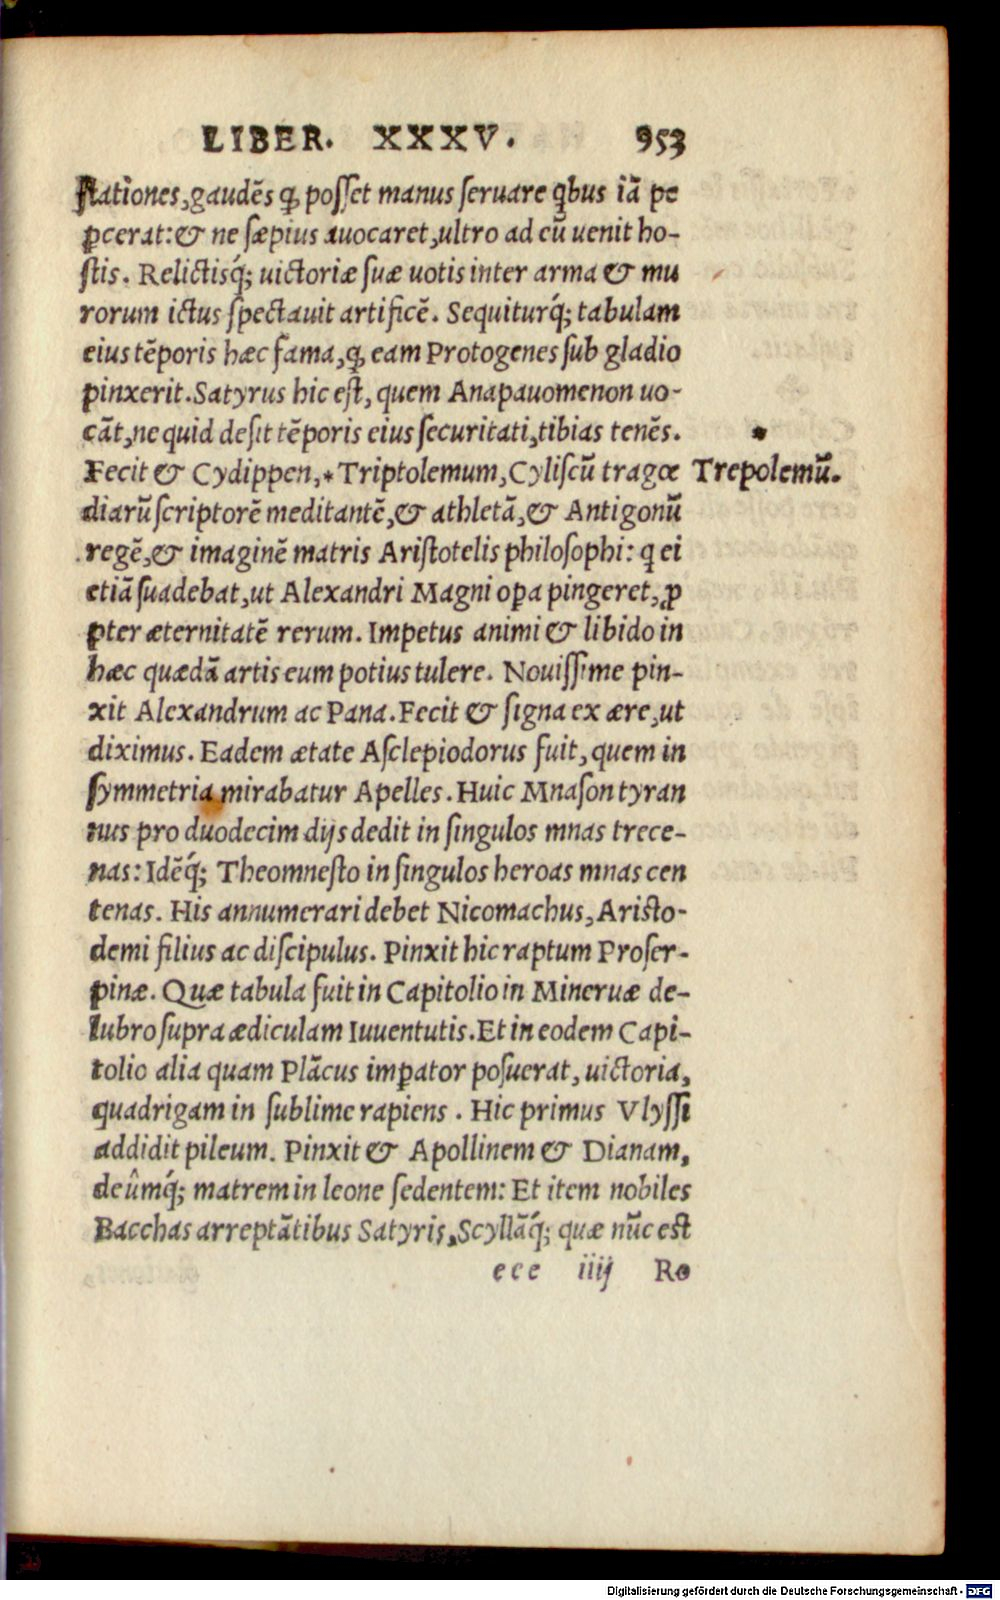 LIBER. XXXV. 953
ſtationes, gaudẽs ꝙ poſſet manus ſeruare qbus iã pe
ꝑcerat: & ne ſæpius auocaret, ultro ad eũ uenit ho-
ſtis. Relictisq́; uictoriæ ſuæ uotis inter arma & mu
rorum ictus ſpectauit artificẽ. Sequiturq́; tabulam
eius tẽporis hæc fama, ꝙ eam Protogenes ſub gladio
pinxerit. Satyrus hic eſt, quem Anapauomenon uo-
cãt, ne quid deſit tẽporis eius ſecuritati, tibias tenẽs. *
Fecit & Cydippen, * Triptolemum, Cyliſcũ tragœ Trepolemũ.
diarũ ſcriptorẽ meditantẽ, & athletã, & Antigonũ
regẽ, & imaginẽ matris Ariſtotelis philoſophi: q ei
etiã ſuadebat, ut Alexandri Magni oꝑa pingeret, ꝓ
pter æternitatẽ rerum. Impetus animi & libido in
hæc quædã artis eum potius tulere. Nouiſſime pin-
xit Alexandrum ac Pana. Fecit & ſigna ex ære, ut
diximus. Eadem ætate Aſclepiodorus fuit, quem in
ſymmetria mirabatur Apelles. Huic Mnaſon tyran
nus pro duodecim dijs dedit in ſingulos mnas trece-
nas: Idẽq́; Theomneſto in ſingulos heroas mnas cen
tenas. His annumerari debet Nicomachus, Ariſto-
demi filius ac diſcipulus. Pinxit hic raptum Proſer-
pinæ. Quæ tabula fuit in Capitolio in Mineruæ de-
lubro ſupra ædiculam Iuuentutis. Et in eodem Capi-
tolio alia quam Plãcus imꝑator poſuerat, uictoria,
quadrigam in ſublime rapiens. Hic primus Vlyſſi
addidit pileum. Pinxit & Apollinem & Dianam,
deûmq́; matrem in leone ſedentem: Et item nobiles
Bacchas arreptãtibus Satyris, Scyllãq́; quæ nũc eſt
ece iiij Ro
Digitalisierung gefördert durch die Deutsche Forschungsgemeinschaft - DFG